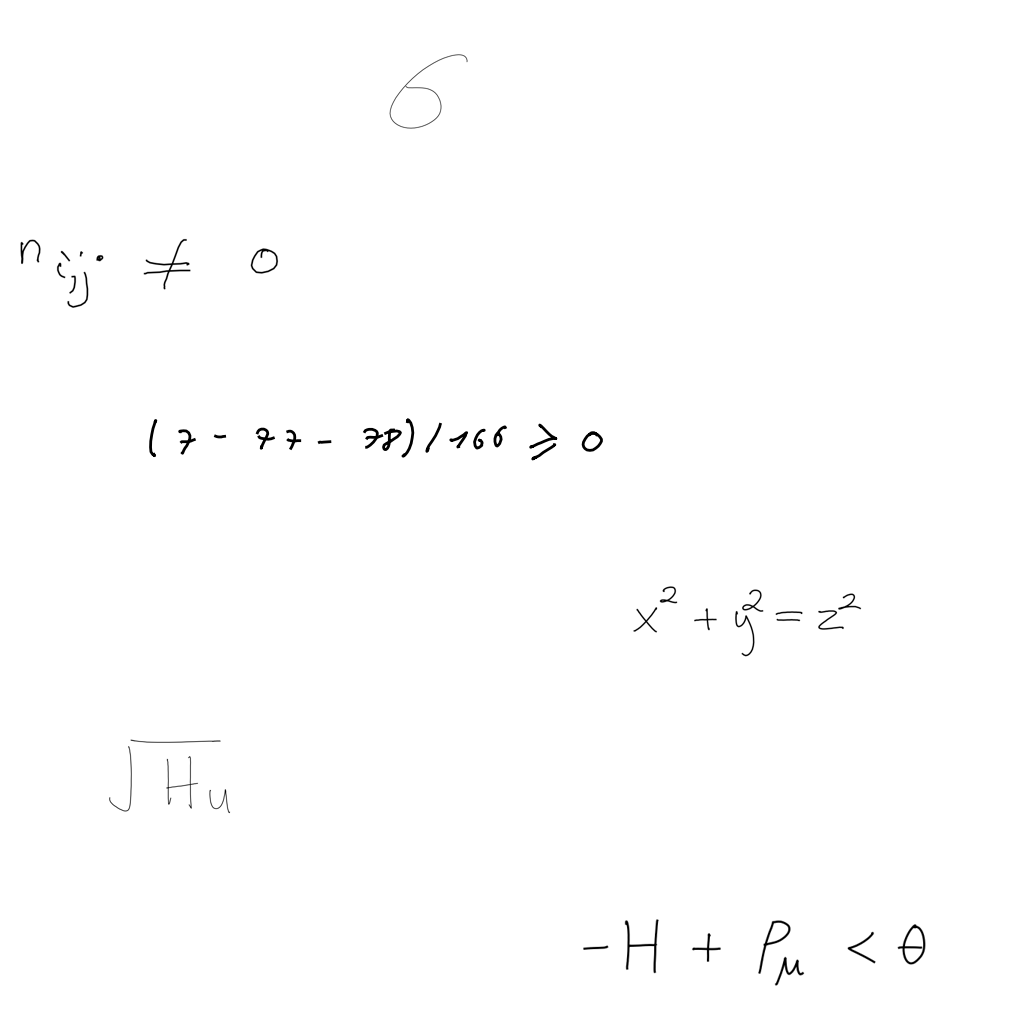 6
n_{i,j} ≠ 0
(7 - 77 - 78)/166 ≥ 0
x² + y² = z²
√Hu
-H + P_μ < θ